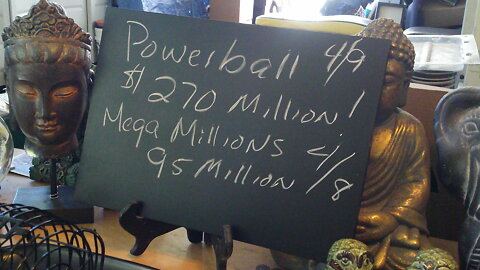 Powerball 4/9
$270 Million!
Mega Millions 4/8
95 Million